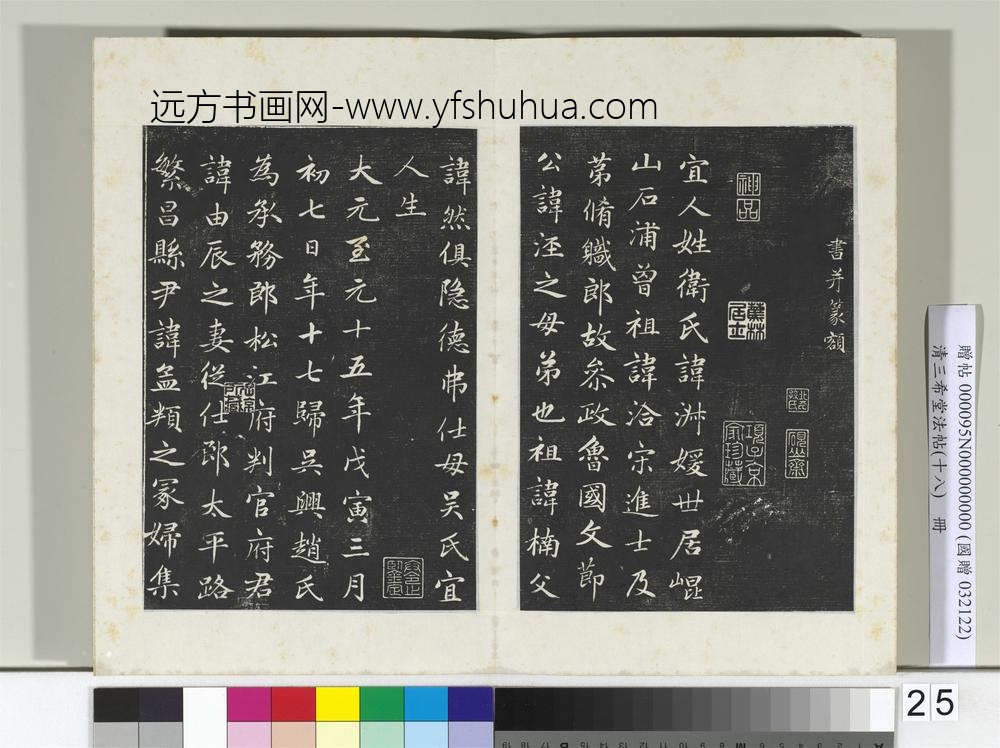 远方书画网-www.yfshuhua.com
書并篆額
神品
宜人姓衛氏諱淑媛世居崐
山石浦曾祖諱洽宋進士及
第脩職郎故叅政魯國文節
公諱涇之母弟也祖諱楠父
諱然俱隐德弗仕母吴氏宜
人生
大元至元十五年戊寅三月
初七日年十七歸吴興趙氏
為承務郎松江府判官府君
諱由辰之妻從仕郎太平路
繁昌縣尹諱孟頖之冢婦集
贈帖 000095N000000000 (國贈 032122)
清三希堂法帖(十八) 冊
25